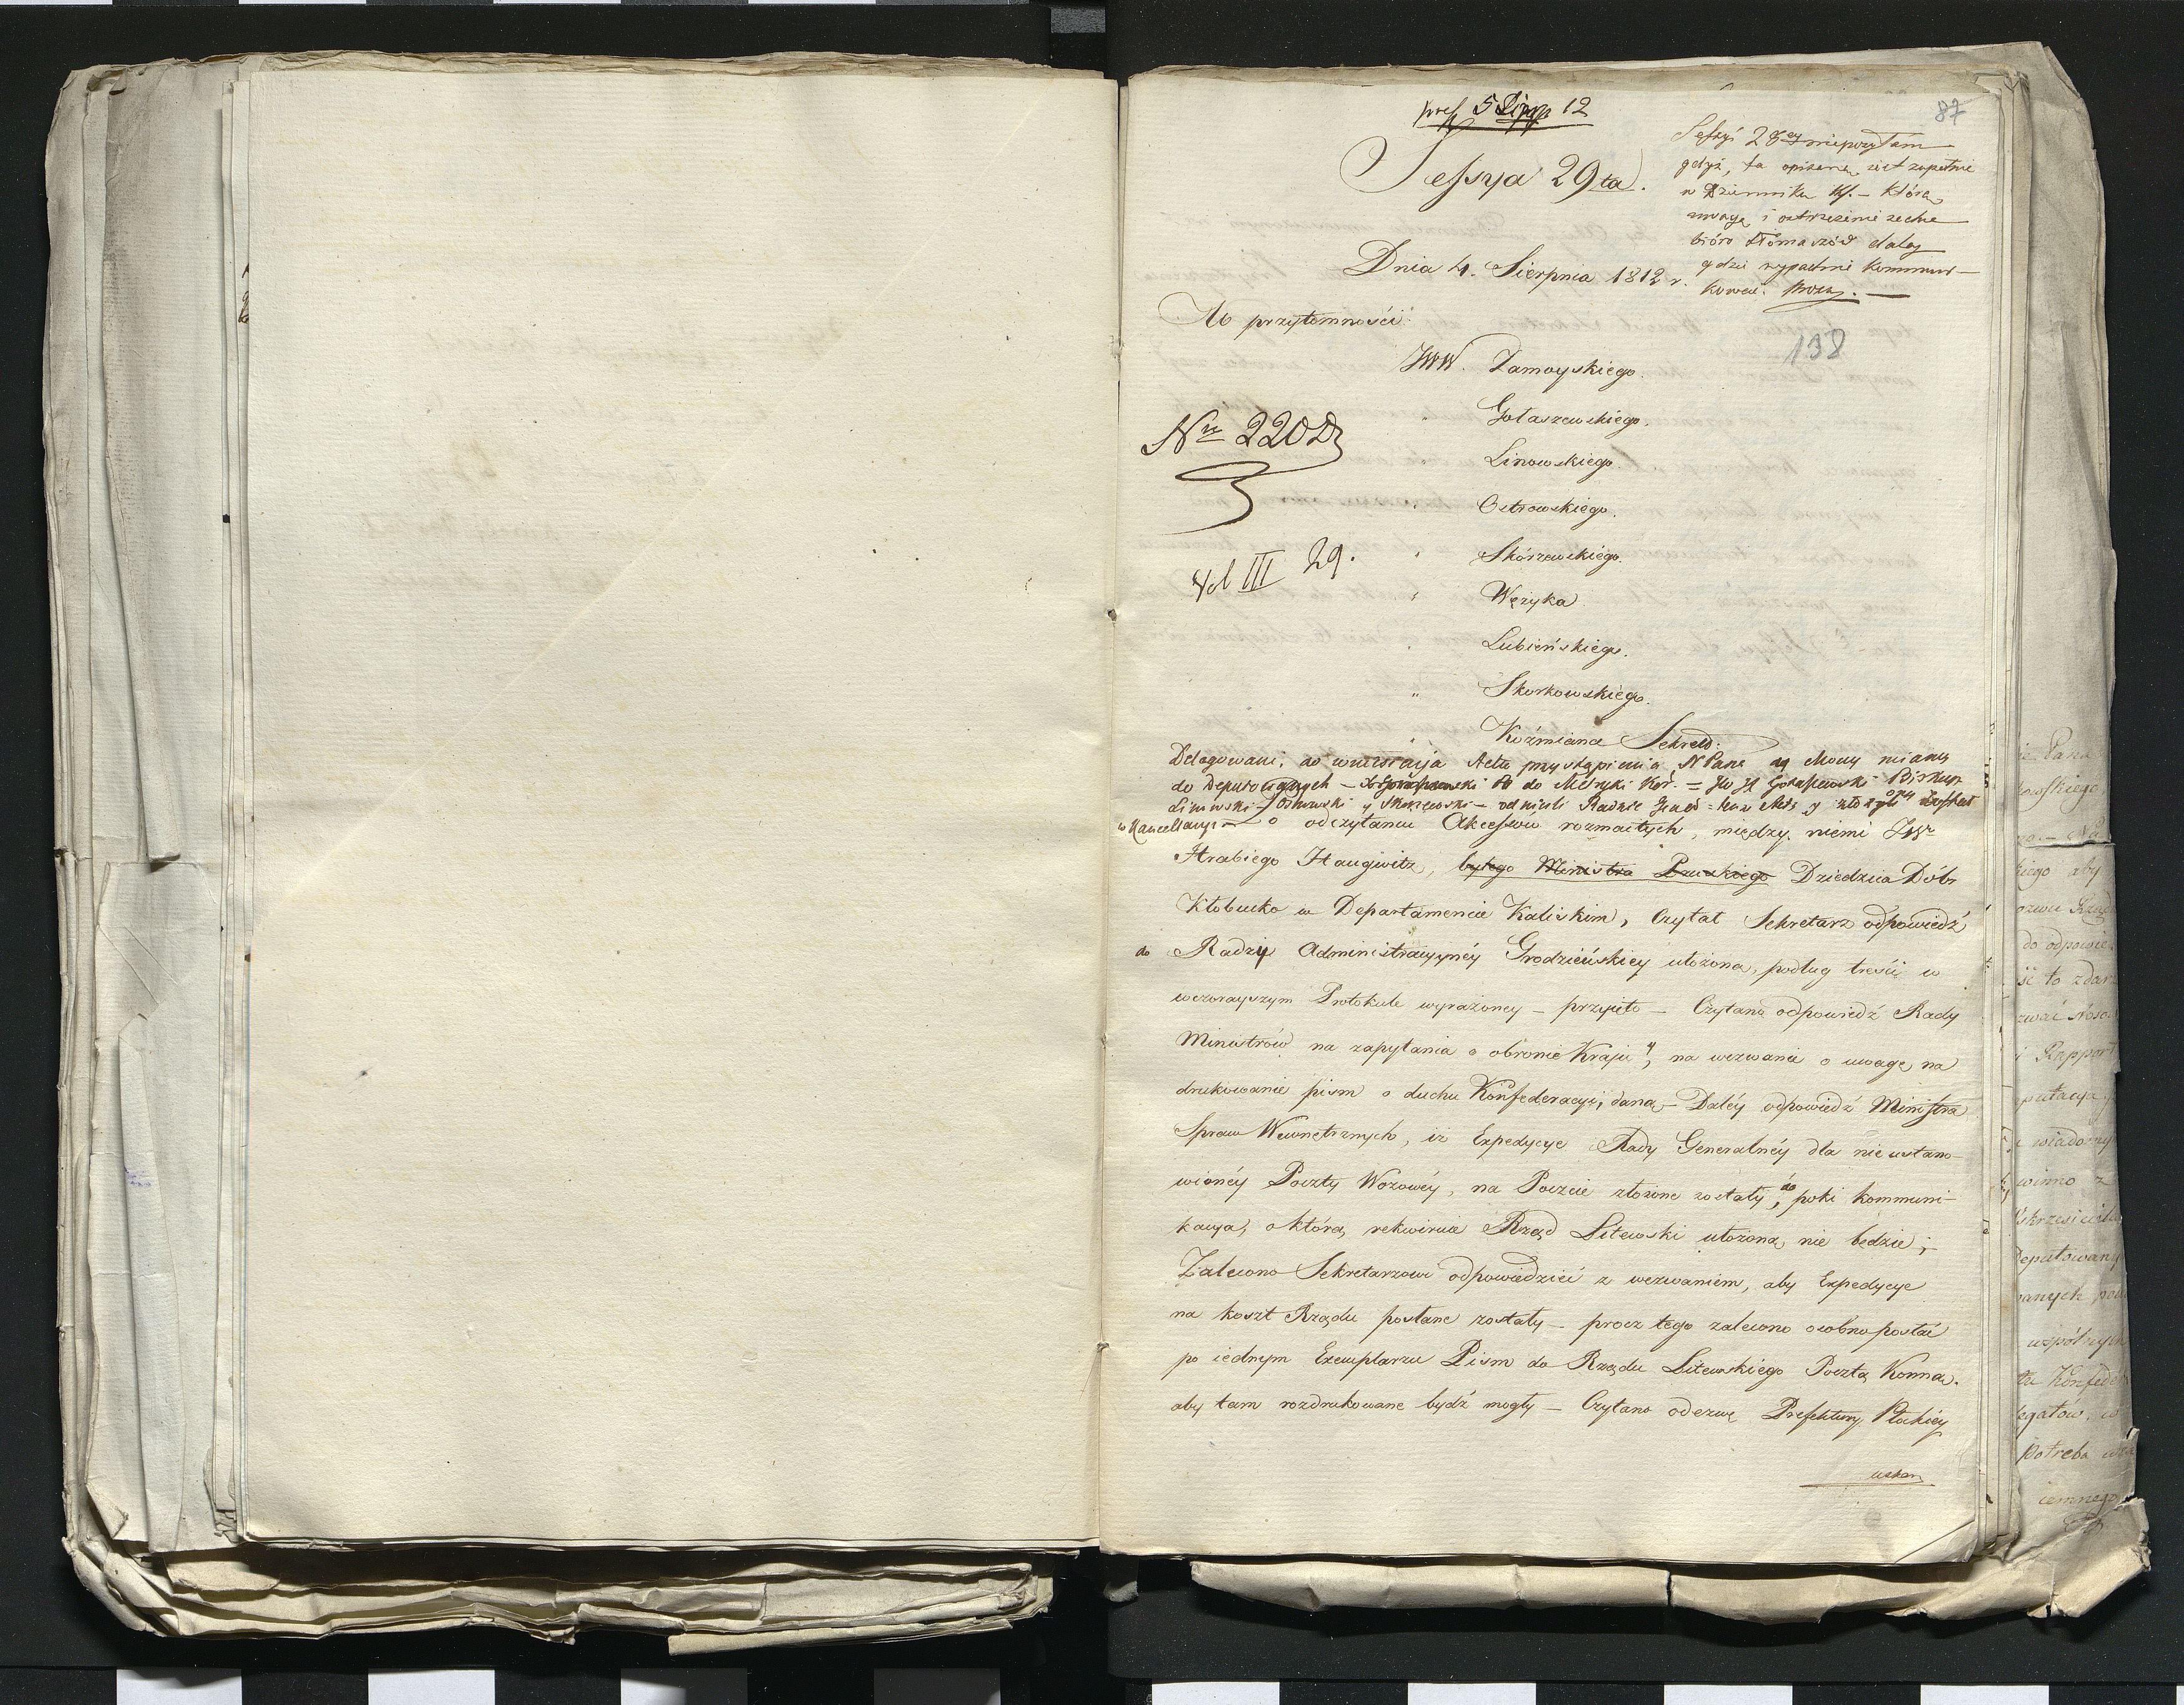 pres 5 Sierp 12
87
Sessya 29ta.
Sessyi 28ey nieprzysłam
gdyż, ta opisana iest zupełnie
w Dzienniku Kf. – którą
uwagę i ostrzeżenie zechce
bióro Tłómaczów daley
gdzie wypadnie kommuni–
kować. proszę. —
Dnia 4. Sierpnia 1812 r.
W przytomności
138
JWW. Zamoyskiego.
Gołaszewskiego.
Nro 2202
Linowskiego.
Ostrowskiego.
Skórzewskiego.
Vol III 29.
Wężyka
Lubieńskiego.
Skorkowskiego.
Koźmiana Sekret:
Delegowani, do wniesienia Aktu przystąpienia N Pana y Mowy mianey
do Deputowanych – do Metryki Kor. = JW JX Gołaszewski Biskup
Linowski Ostrowski y Skorzewski – odnieśli Radzie Gener = tenże Akt y złożyli
w Kancellaryi – o odczytaniu Akcessów rozmaitych, między niemi JW
Hrabiego Haugwitz, byłego Ministra Pruskiego Dziedzica Dóbr
Kłobucko w Departamencie Kaliskim, Czytał Sekretarz odpowiedź
do Rady Administracyynéy Grodzieńskiey ułożoną, podług treści w
wczorayszym Protokule wyrażoney – przyięto – Czytano odpowiedź Rady
Ministrów na zapytania o obronie Kraju y, na wezwanie o uwagę na
drukowanie pism o duchu Konfederacyi, daną – Daléy odpowiedź Ministra
Spraw Wewnętrznych, iż Expedycye Rady Generalnéy dla nie ustano–
wionéy Poczty Wozowéy, na Poczcie złożone zostały, do póki kommuni–
kacya, o którą rekwiruie Rząd Litewski ułożoną nie będzie;
Zalecono Sekretarzowi odpowiedzieć z wezwaniem, aby Expedycye
na koszt Rządu posłane zostały – prócz tego zalecono osobno posłać
po iednym Exemplarzu Pism do Rządu Litewskiego Pocztą Konną.
aby tam rozdrukowane bydź mogły – Czytano odezwę Prefektury Płockiéy